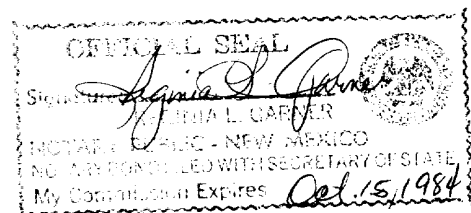 OFFICIAL SEAL
Signature Virginia L. Garner
VIRGINIA L. GARNER
NOTARY PUBLIC - NEW MEXICO
NOTARY BOND FILED WITH SECRETARY OF STATE
My Commission Expires Oct. 15, 1984